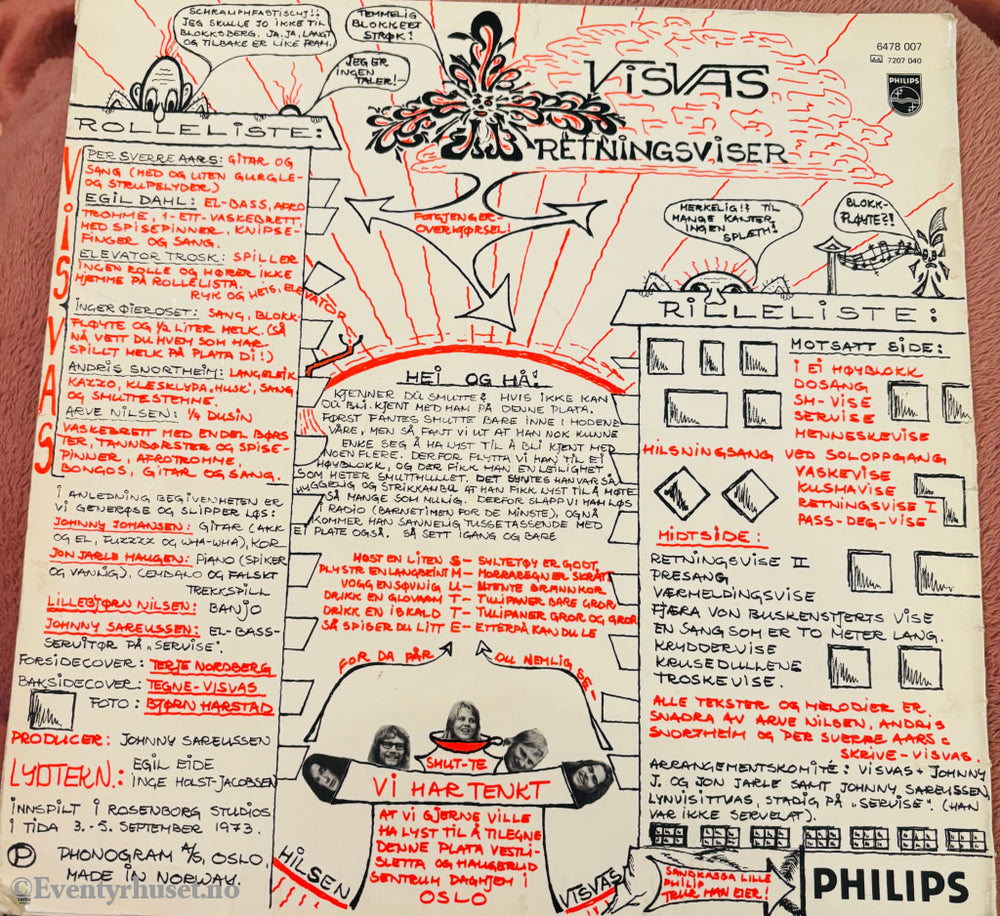 SCHRAUMPHFASTISCHJ!!
JEG SKULLE JO IKKE TIL
BLOKKSBERG. JA, JA, LANGT
OG TILBAKE ER LIKE FRAM.
TEMMELIG
BLOKKERT
STRØK!
JEG ER
INGEN
TALER!
ViSVAS
RETNINGSVISER
6478 007
7207 040
PHILIPS
ROLLELISTE:
ViSVAS
PER SVERRE AARS: GITAR OG
SANG (MED OG UTEN GURGLE-
OG STRUPELYDER)
EGIL DAHL: EL-BASS, AFRO
TROMME, 1-ETT-VASKEBRETT
MED SPISEPINNER, KNIPSE-
FINGER OG SANG.
ELEVATOR TROSK: SPILLER
INGEN ROLLE OG HØRER IKKE
HJEMME PÅ ROLLELISTA.
RYK OG HEIS, ELEVATOR
INGER ØIEROSET: SANG, BLOKK-
FLØYTE OG 1/2 LITER MELK. (SÅ
NÅ VETT DU HVEM SOM HAR
SPILLT MELK PÅ PLATA DI!)
ANDRIS SNORTHEIM: LANGELEIK
KAZZO, KLESKLYPA "HUSK", SANG
OG SMUTTESTEMME.
ARVE NILSEN: 1/4 DUSIN
VASKEBRETT MED ENDEL BØRS
TER, TANNBØRSTER OG SPISE-
PINNER, AFROTROMME,
BONGOS, GITAR OG SANG.
I ANLEDNING BEGIVENHETEN ER
VI GENERØSE OG SLIPPER LØS:
JOHNNY JOHANSEN: GITAR (AKK
OG EL, FUZZZZ OG WHA-WHA), KOR
JON JARLE HAUGEN: PIANO (SPIKER
OG VANLIG), CEMBALO OG FALSKT
TREKKSPILL
LILLEBJØRN NILSEN: BANJO
JOHNNY SAREUSSEN: EL-BASS-
SERVITØR PÅ "SERVISE".
FORSIDECOVER: TERJE NORDBERG
BAKSIDECOVER: TEGNE-VISVAS
FOTO: BJØRN HARSTAD
PRODUCER: JOHNNY SAREUSSEN
LYDTEKN.: EGIL EIDE
INGE HOLST-JACOBSEN
INNSPILT I ROSENBORG STUDIOS
I TIDA 3.-5. SEPTEMBER 1973.
Ⓟ PHONOGRAM A/S, OSLO,
MADE IN NORWAY.
FOTGJENGER-
OVERKJØRSEL!
HEI OG HÅ!
KJENNER DU SMUTTE? HVIS IKKE KAN
DU BLI KJENT MED HAN PÅ DENNE PLATA.
FØRST FANTES SMUTTE BARE INNE I HODENE
VÅRE, MEN SÅ FANT VI UT AT HAN NOK KUNNE
TENKE SEG Å HA LYST TIL Å BLI KJENT MED
NOEN FLERE. DERFOR FLYTTA VI HAN TIL EI
HØYBLOKK, OG DER FIKK HAN EN LEILIGHET
SOM HETER SMUTTHULLET. DET SYNTES HAN VAR SÅ
HYGGELIG OG STRIKKAMBU AT HAN FIKK LYST TIL Å MØTE
SÅ MANGE SOM MULIG. DERFOR SLAPP VI HAN LØS
I RADIO (BARNETIMEN FOR DE MINSTE), OG NÅ
KOMMER HAN SANNELIG TUSSETASSENDE MED
EI PLATE OGSÅ. SÅ SETT IGANG OG BARE
HØST EN LITEN S- SYLTETØY ER GODT,
PLYSTR EN LANGBEINT M- MORRABEGN ER SKRÅTT
VOGG EN SØVNIG U- UTENTE BRANNKOR
DRIKK EN GLOVARM T- TULIPANER BARE GROR
DRIKK EN ISKALD T- TULIPANER GROR OG GROR
SÅ SPISER DU LITT E- ETTERPÅ KAN DU LE
FOR DA FÅR
DU NEMLIG SE-
SMUT-TE
VI HAR TENKT
AT VI GJERNE VILLE
HA LYST TIL Å TILEGNE
DENNE PLATA VESTLI-
SLETTA OG HAUGERUD
SENTRUM DAGHJEM I
OSLO
HILSEN
VISVAS
MERKELIG!? TIL
MANGE KANTER,
INGEN
SPLÆTH!
BLOKK-
FLØUTE?!
RILLELISTE:
MOTSATT SIDE:
I EI HØYBLOKK
DOSANG
SM-VISE
SERVISE
MENNESKEVISE
HILSNINGSANG VED SOLOPPGANG
VASKEVISE
KUSMAVISE
RETNINGSVISE I
PASS-DEG-VISE
HIDTSIDE:
RETNINGSVISE II
PRESANG
VÆRMELDINGSVISE
FJÆRA VON BUSKENSTJERTS VISE
EN SANG SOM ER TO METER LANG.
KRYDDERVISE
KRUSEDULLENE
TROSKEVISE.
ALLE TEKSTER OG MELODIER ER
SNADRA AV ARVE NILSEN, ANDRIS
SNORTHEIM OG PER SVERRE AARS =
SKRIVE-VISVAS.
ARRANGEMENTSKOMITÉ: VISVAS + JOHNNY
J. OG JON JARLE SAMT JOHNNY SAREUSSEN,
LYNVISITTVAS, STADIG PÅ "SERVISE". (HAN
VAR IKKE SERVELAT).
SANDKASSA LILLE
PHILIP
TRUR HAN EIER!
PHILIPS
©Eventyrhuset.no